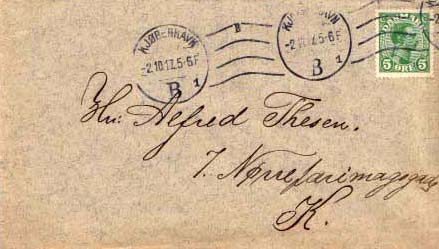 KJØBENHAVN
-2.10.17.5-6F
B 1
KJØBENHAVN
-2.10.17.5-6F
B 1
DANMARK
5 ØRE 5
Hr. Alfred Thesen.
7. Nørrefarimagsgade
K.